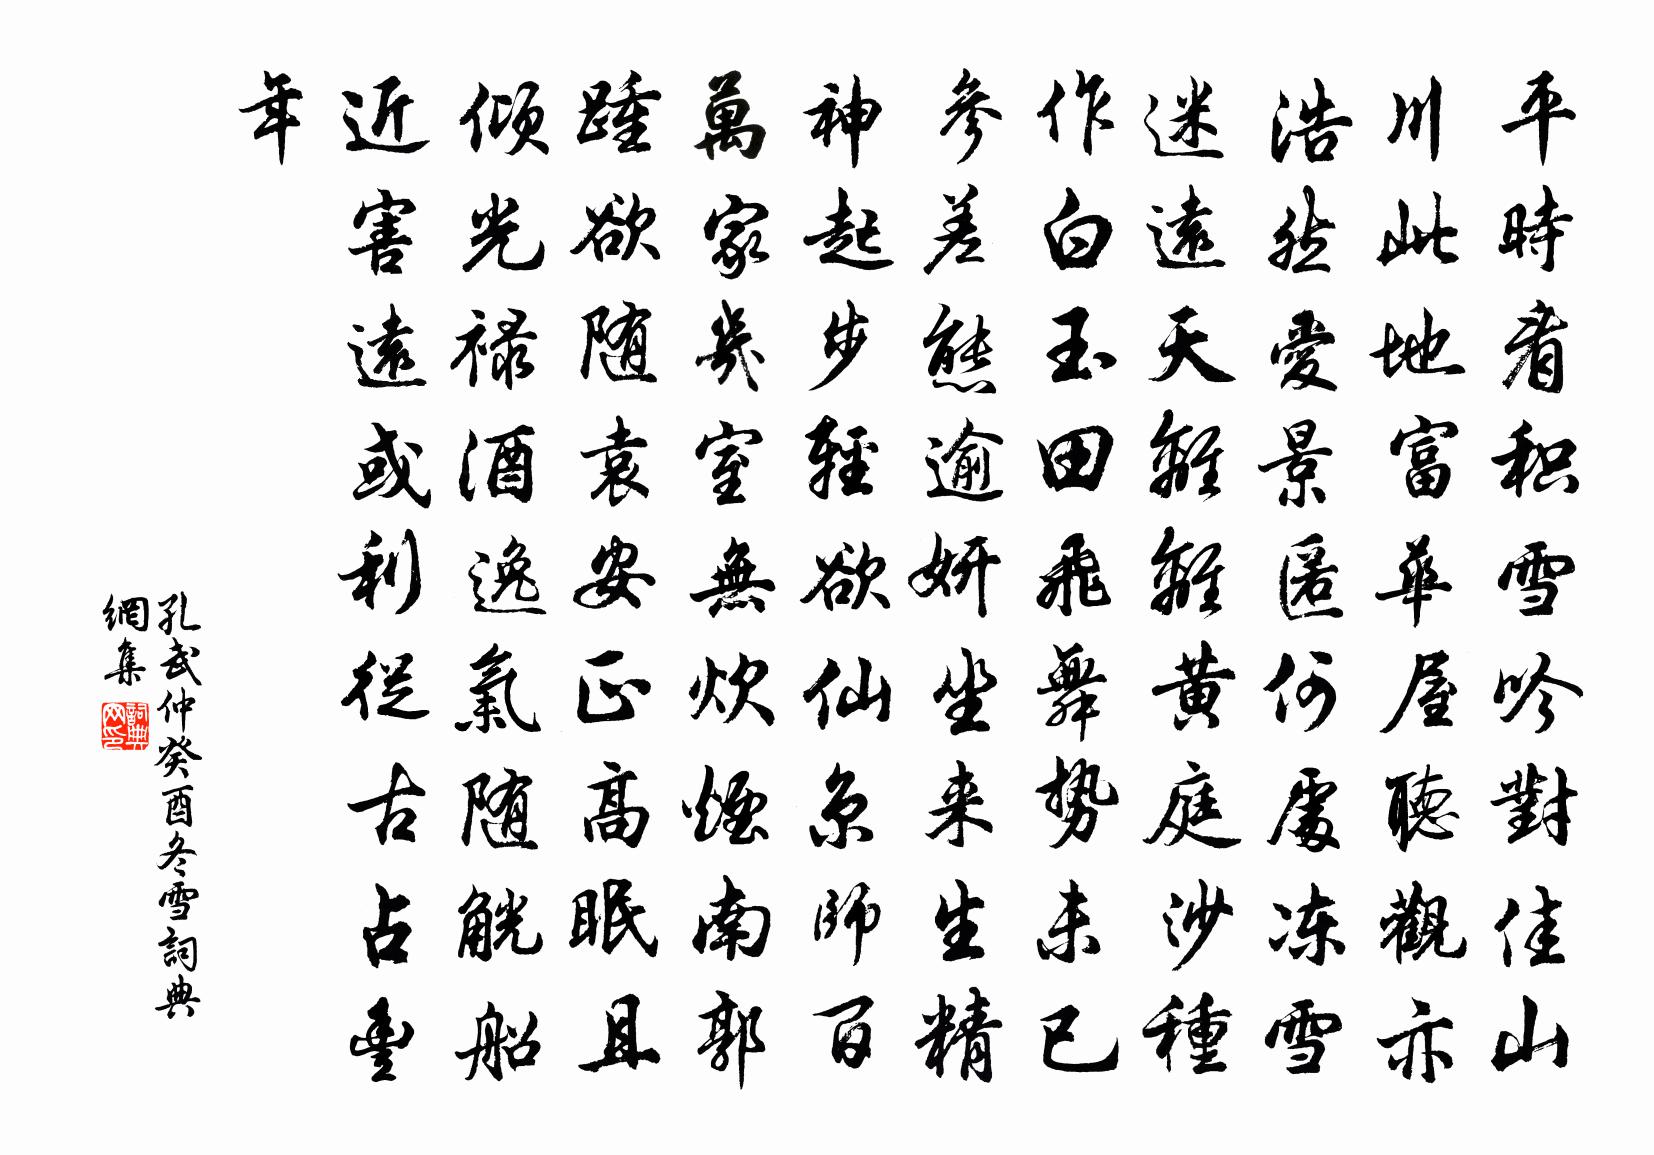 平時看积雪吟對佳山
川此地富華屋聽觀亦
浩然愛景匿何處冻雪
迷遠天離離黄庭沙種
作白玉田飛舞勢未已
參差態逾妍坐来生精
神起步輕欲仙京師百
萬家幾室無炊煙南郭
踵欲随袁安正高眠且
倾光禄酒逸氣随觥船
近害遠或利從古占豊
年
孔武仲癸酉冬雪詞典
網集
詞典网印